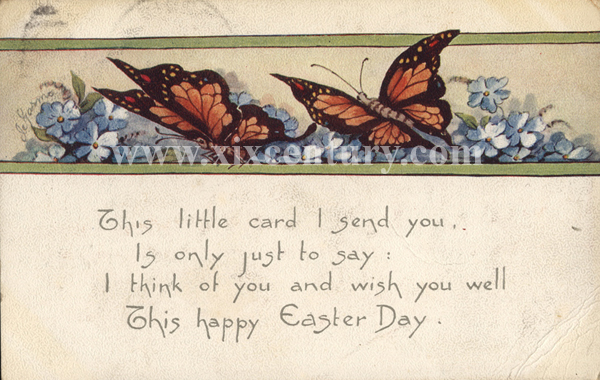 www.xixcentury.com
This little card I send you..
Is only just to say :
I think of you and wish you well
This happy Easter Day.